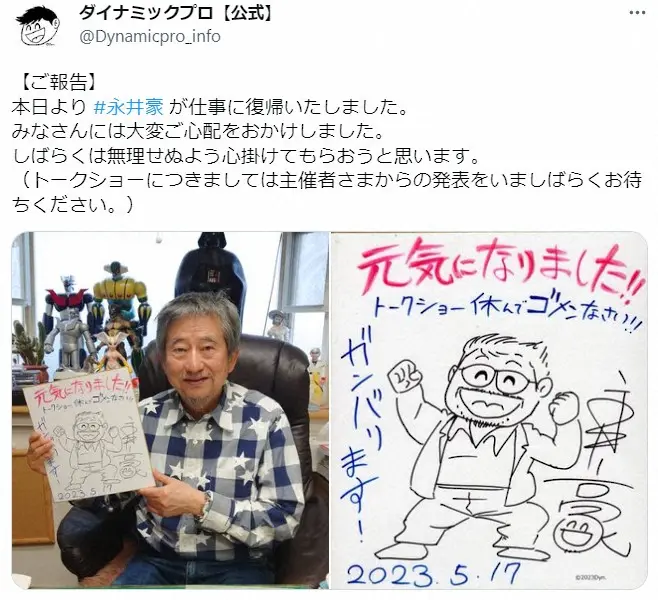 ダイナミックプロ【公式】
@Dynamicpro_info
【ご報告】
本日より #永井豪 が仕事に復帰いたしました。
みなさんには大変ご心配をおかけしました。
しばらくは無理せぬよう心掛けてもらおうと思います。
（トークショーにつきましては主催者さまからの発表をいましばらくお待
ちください。）
元気になりました!!
トークショー休んでゴメンなさい!!
ガンバります!
2023.5.17
元気になりました!!
トークショー休んでゴメンなさい!!
ガンバります！
永井豪
2023.5.17
©2023Dyn.